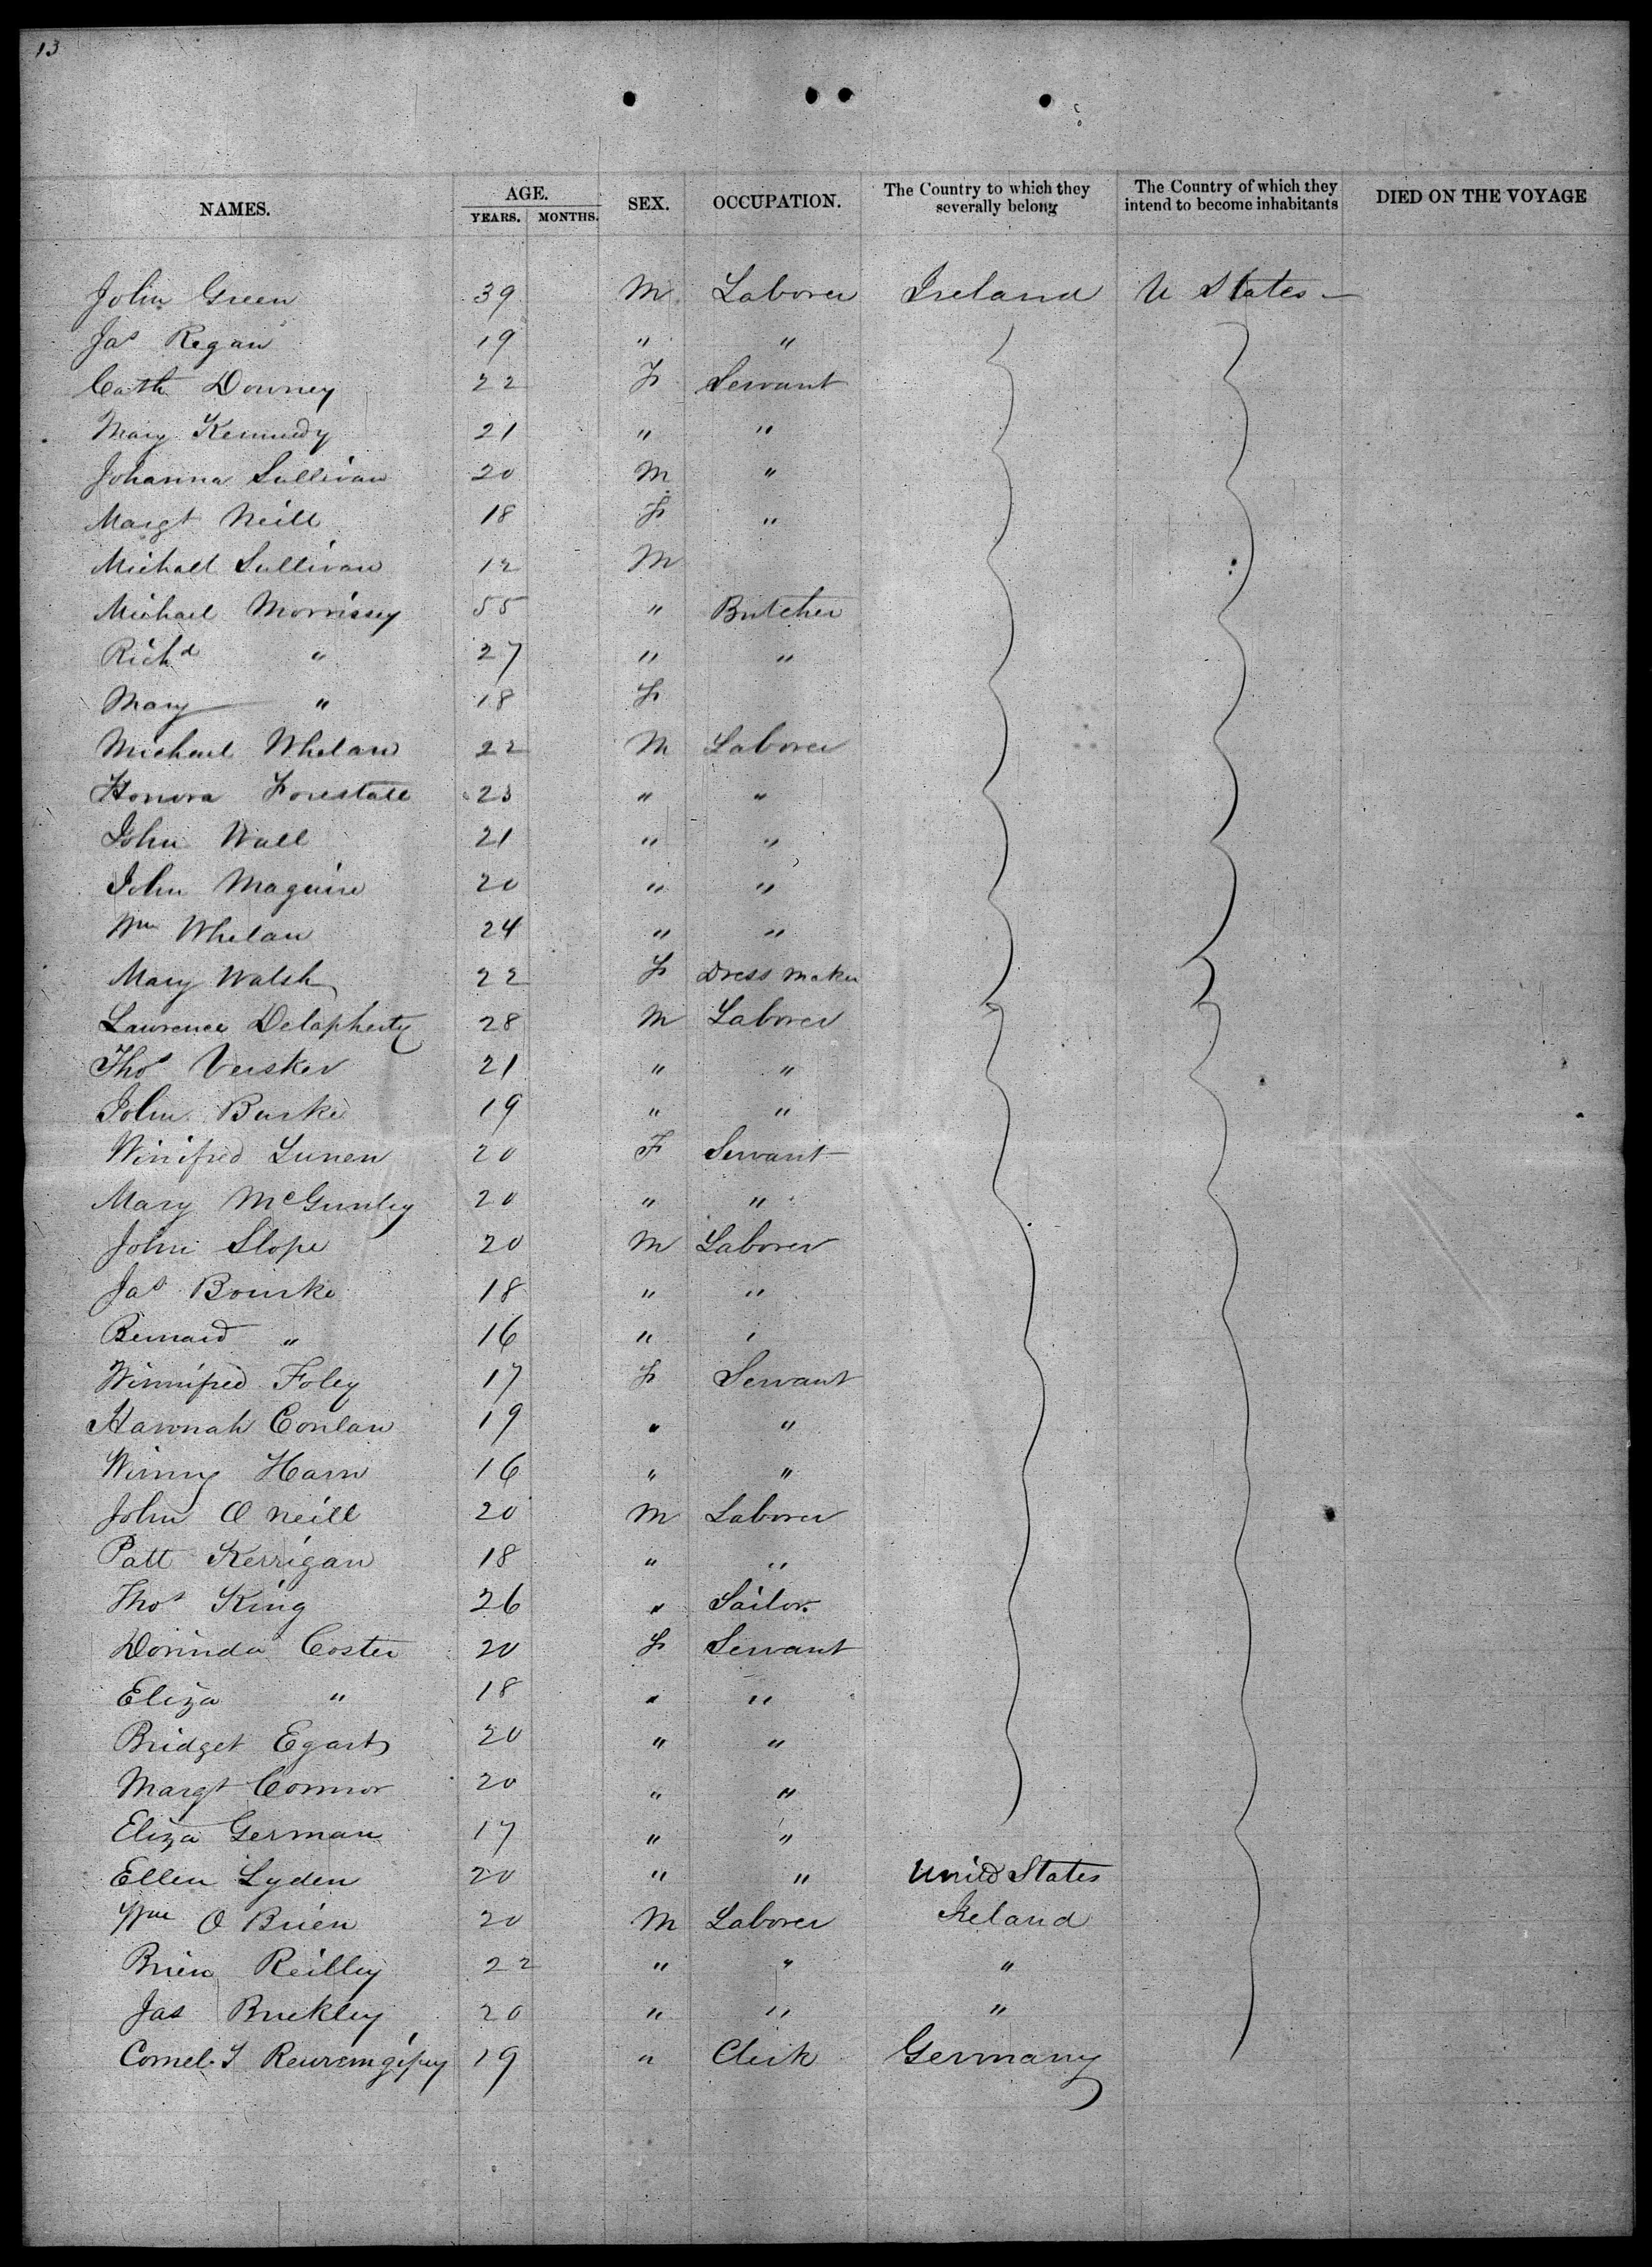 13
NAMES. AGE. YEARS. MONTHS. SEX. OCCUPATION. The Country to which they severally belong The Country of which they intend to become inhabitants DIED ON THE VOYAGE
John Green 39 M Laborer Ireland U States —
Jas Regan 19 " "
Cath Downey 22 F Servant
Mary Kennedy 21 " "
Johanna Sullivan 20 M "
Margt Neill 18 F "
Michael Sullivan 12 M
Michael Morrissey 55 " Butcher
Richd " 27 " "
Mary " 18 F
Michael Whelan 22 M Laborer
Honora Forestall 23 " "
John Wall 21 " "
John Maguire 20 " "
Wm Whelan 24 " "
Mary Walsh 22 F Dress Maker
Lawrence Delapherty 28 M Laborer
Thos Versker 21 " "
John Burke 19 " "
Winifred Lunen 20 F Servant
Mary McGunley 20 " "
John Slope 20 M Laborer
Jas Bourke 18 " "
Bernard " 16 " "
Winnifred Foley 17 F Servant
Hannah Conlan 19 " "
Winny Harn 16 " "
John O Neill 20 M Laborer
Patt Kerrigan 18 " "
Thos King 26 " Sailor
Dorinda Coster 20 F Servant
Eliza " 18 " "
Bridget Egart 20 " "
Margt Connor 20 " "
Eliza German 17 " "
Ellen Lyden 20 " " United States
Wm O Brien 20 M Laborer Ireland
Brien Reilly 22 " " "
Jas Buckley 20 " " "
Cornel. 19 " Clerk Germany